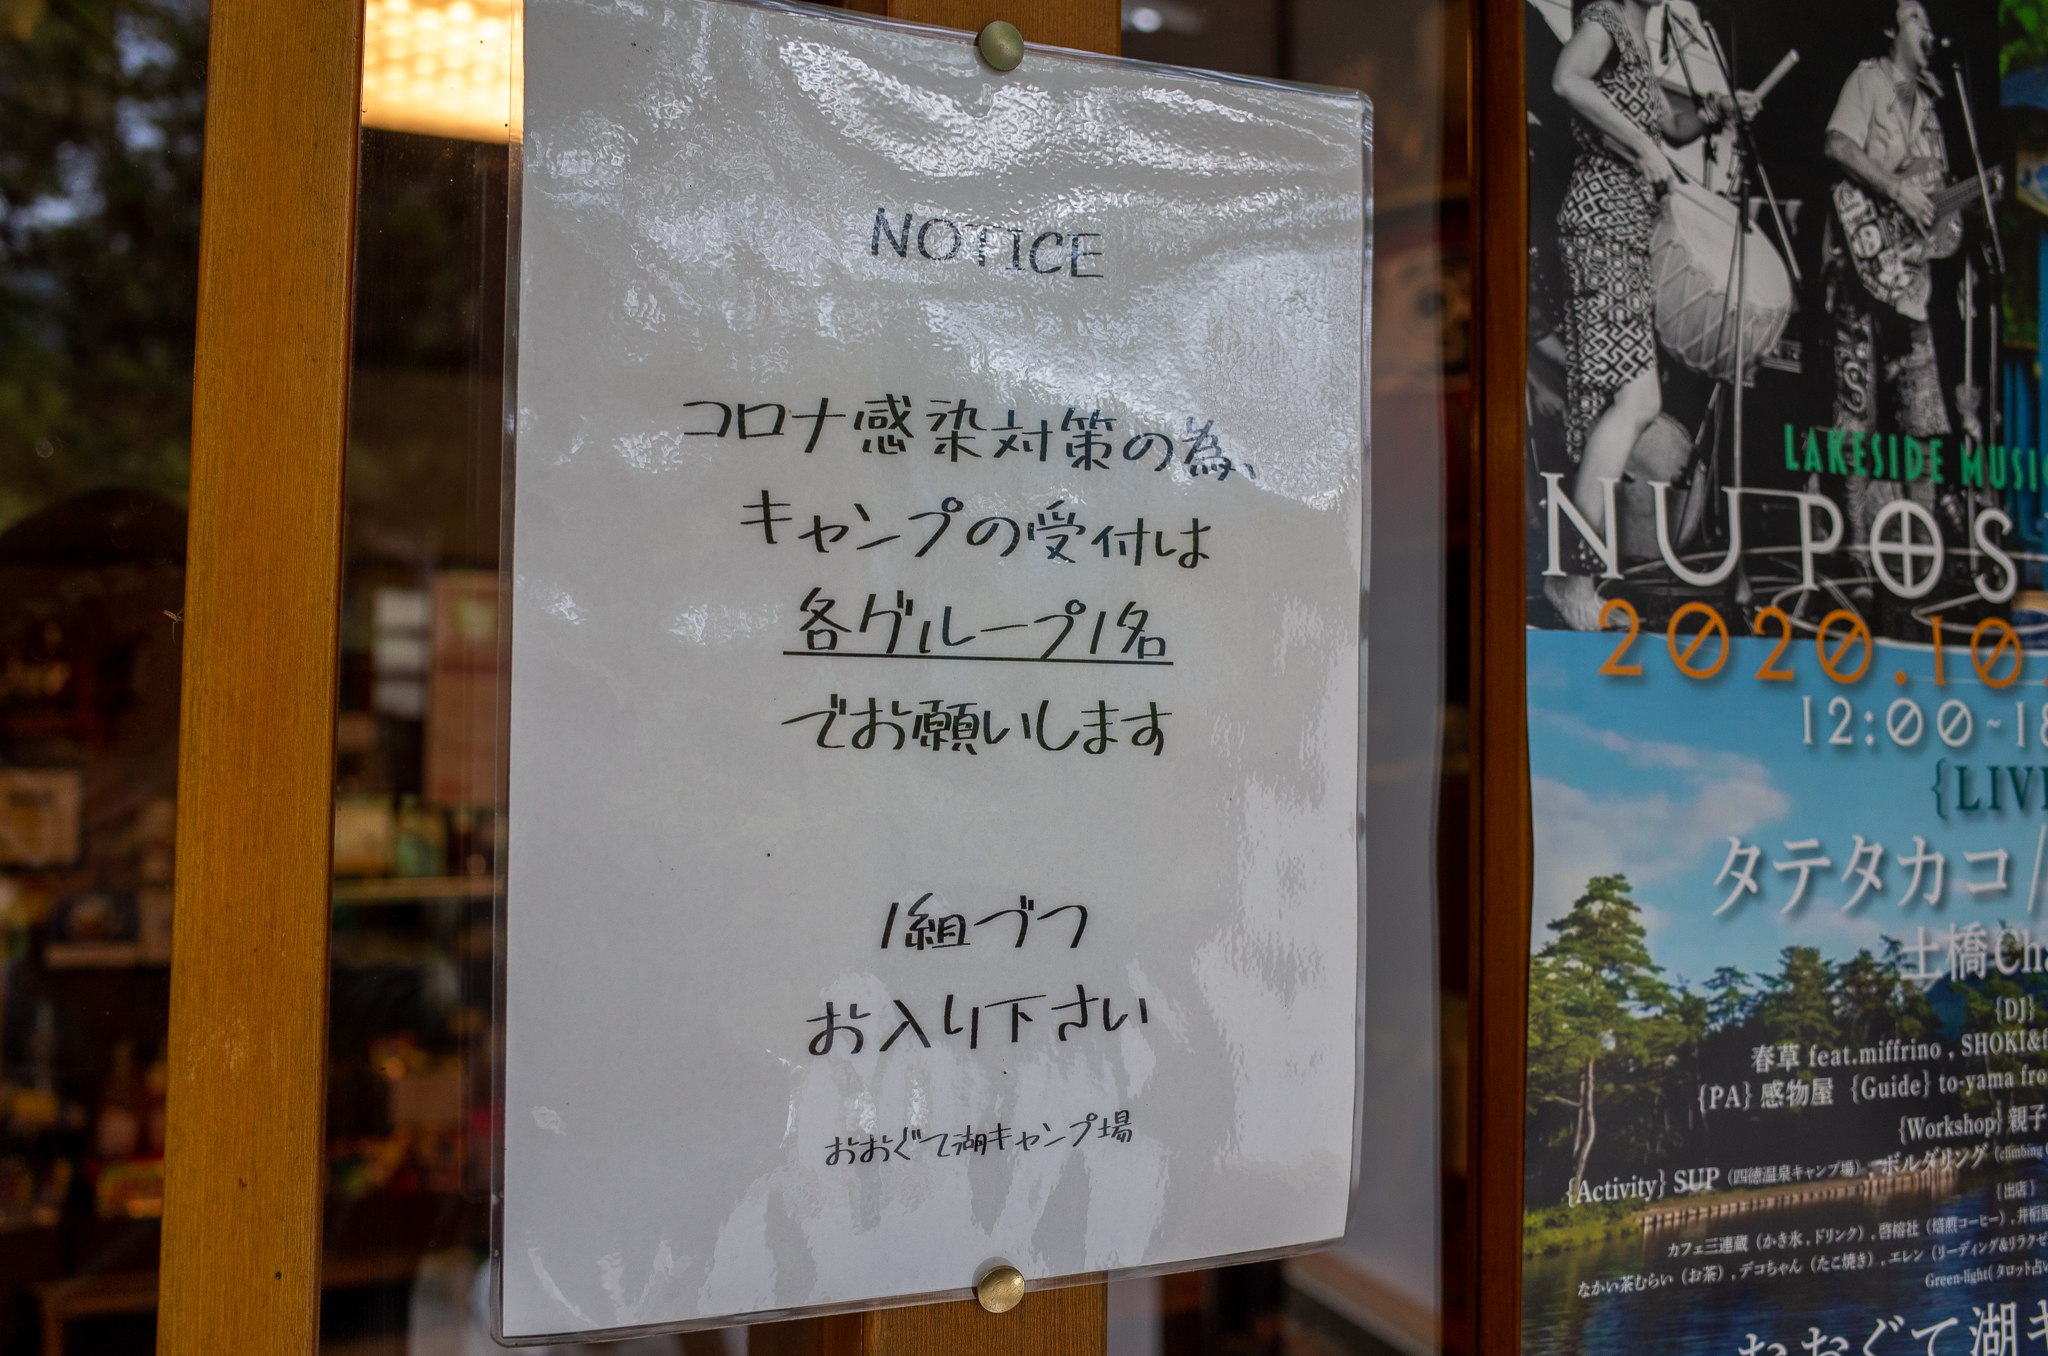 NOTICE
コロナ感染対策の為、
キャンプの受付は
各グループ1名
でお願いします
1組づつ
お入り下さい
おおぐて湖キャンプ場
LAKESIDE MUSIC
NU POS
2020.10
12:00~18
{LIVE
タテタカコ /
土橋Cha
{DJ}
春草 feat.miffrino , SHOKI&f
{PA} 感物屋 {Guide} to-yama fro
{Workshop} 親子
{Activity} SUP (四徳温泉キャンプ場) , ボルダリング (climbing
{出店}
カフェ三連蔵 (かき氷 , ドリンク) , 啓榕社 (焙煎コーヒー) , 井桁屋
なかい茶むらい (お茶) , デコちゃん (たこ焼き) , エレン (リーディング&リラクゼ
Green-light( タロット占い
おおぐて湖キ